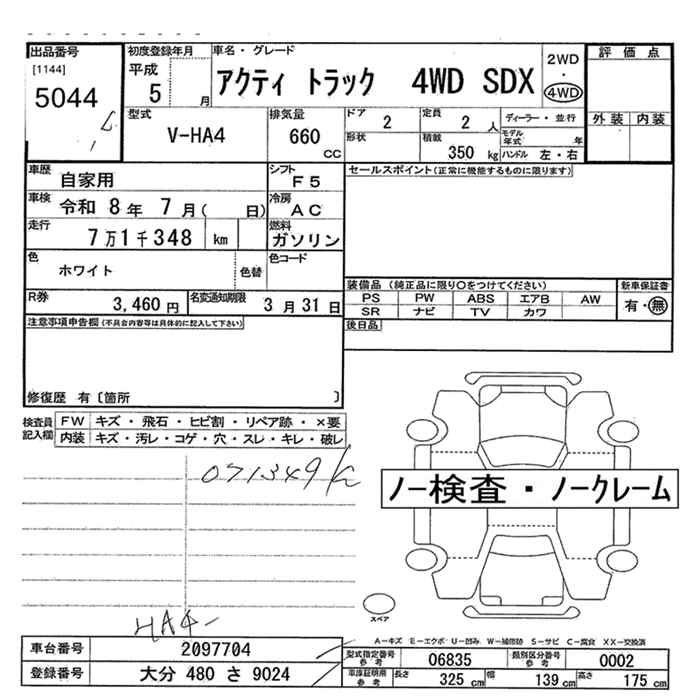 出品番号
[1144]
5044
初度登録年月
平成
5 月
車名・グレード
アクティ トラック 4WD SDX
2WD
・
4WD
評価点
外装 内装
型式
V-HA4
排気量
660
CC
ドア
2
定員
2 人
形状
積載
350 kg
ディーラー・並行
モデル年式 年
ハンドル 左・右
車歴
自家用
シフト
F5
車検
令和 8年 7月( 日)
冷房
AC
走行
7万1千348 km
燃料
ガソリン
色
ホワイト
色替
色コード
R券
3,460 円
名変通知期限
3月31日
セールスポイント(正常に機能するものに限ります)
装備品(純正品に限り○をつけてください)
PS PW ABS エアB AW
SR ナビ TV カワ
新車保証書
有・無
後日品
注意事項申告欄(不具合内容等は具体的に記入して下さい)
修復歴 有〔箇所 〕
検査員記入欄
FW キズ・飛石・ヒビ割・リペア跡・×要
内装 キズ・汚レ・コゲ・穴・スレ・キレ・破レ
071349
ノー検査・ノークレーム
スペア
HA4-
A-キズ E-エクボ U-凹み W-補修跡 S-サビ C-腐食 XX-交換済
車台番号 2097704
登録番号 大分 480 さ 9024
型式指定番号 参考 06835
類別区分番号 参考 0002
車庫証明用 参考 長さ 325 cm 幅 139 cm 高さ 175 cm